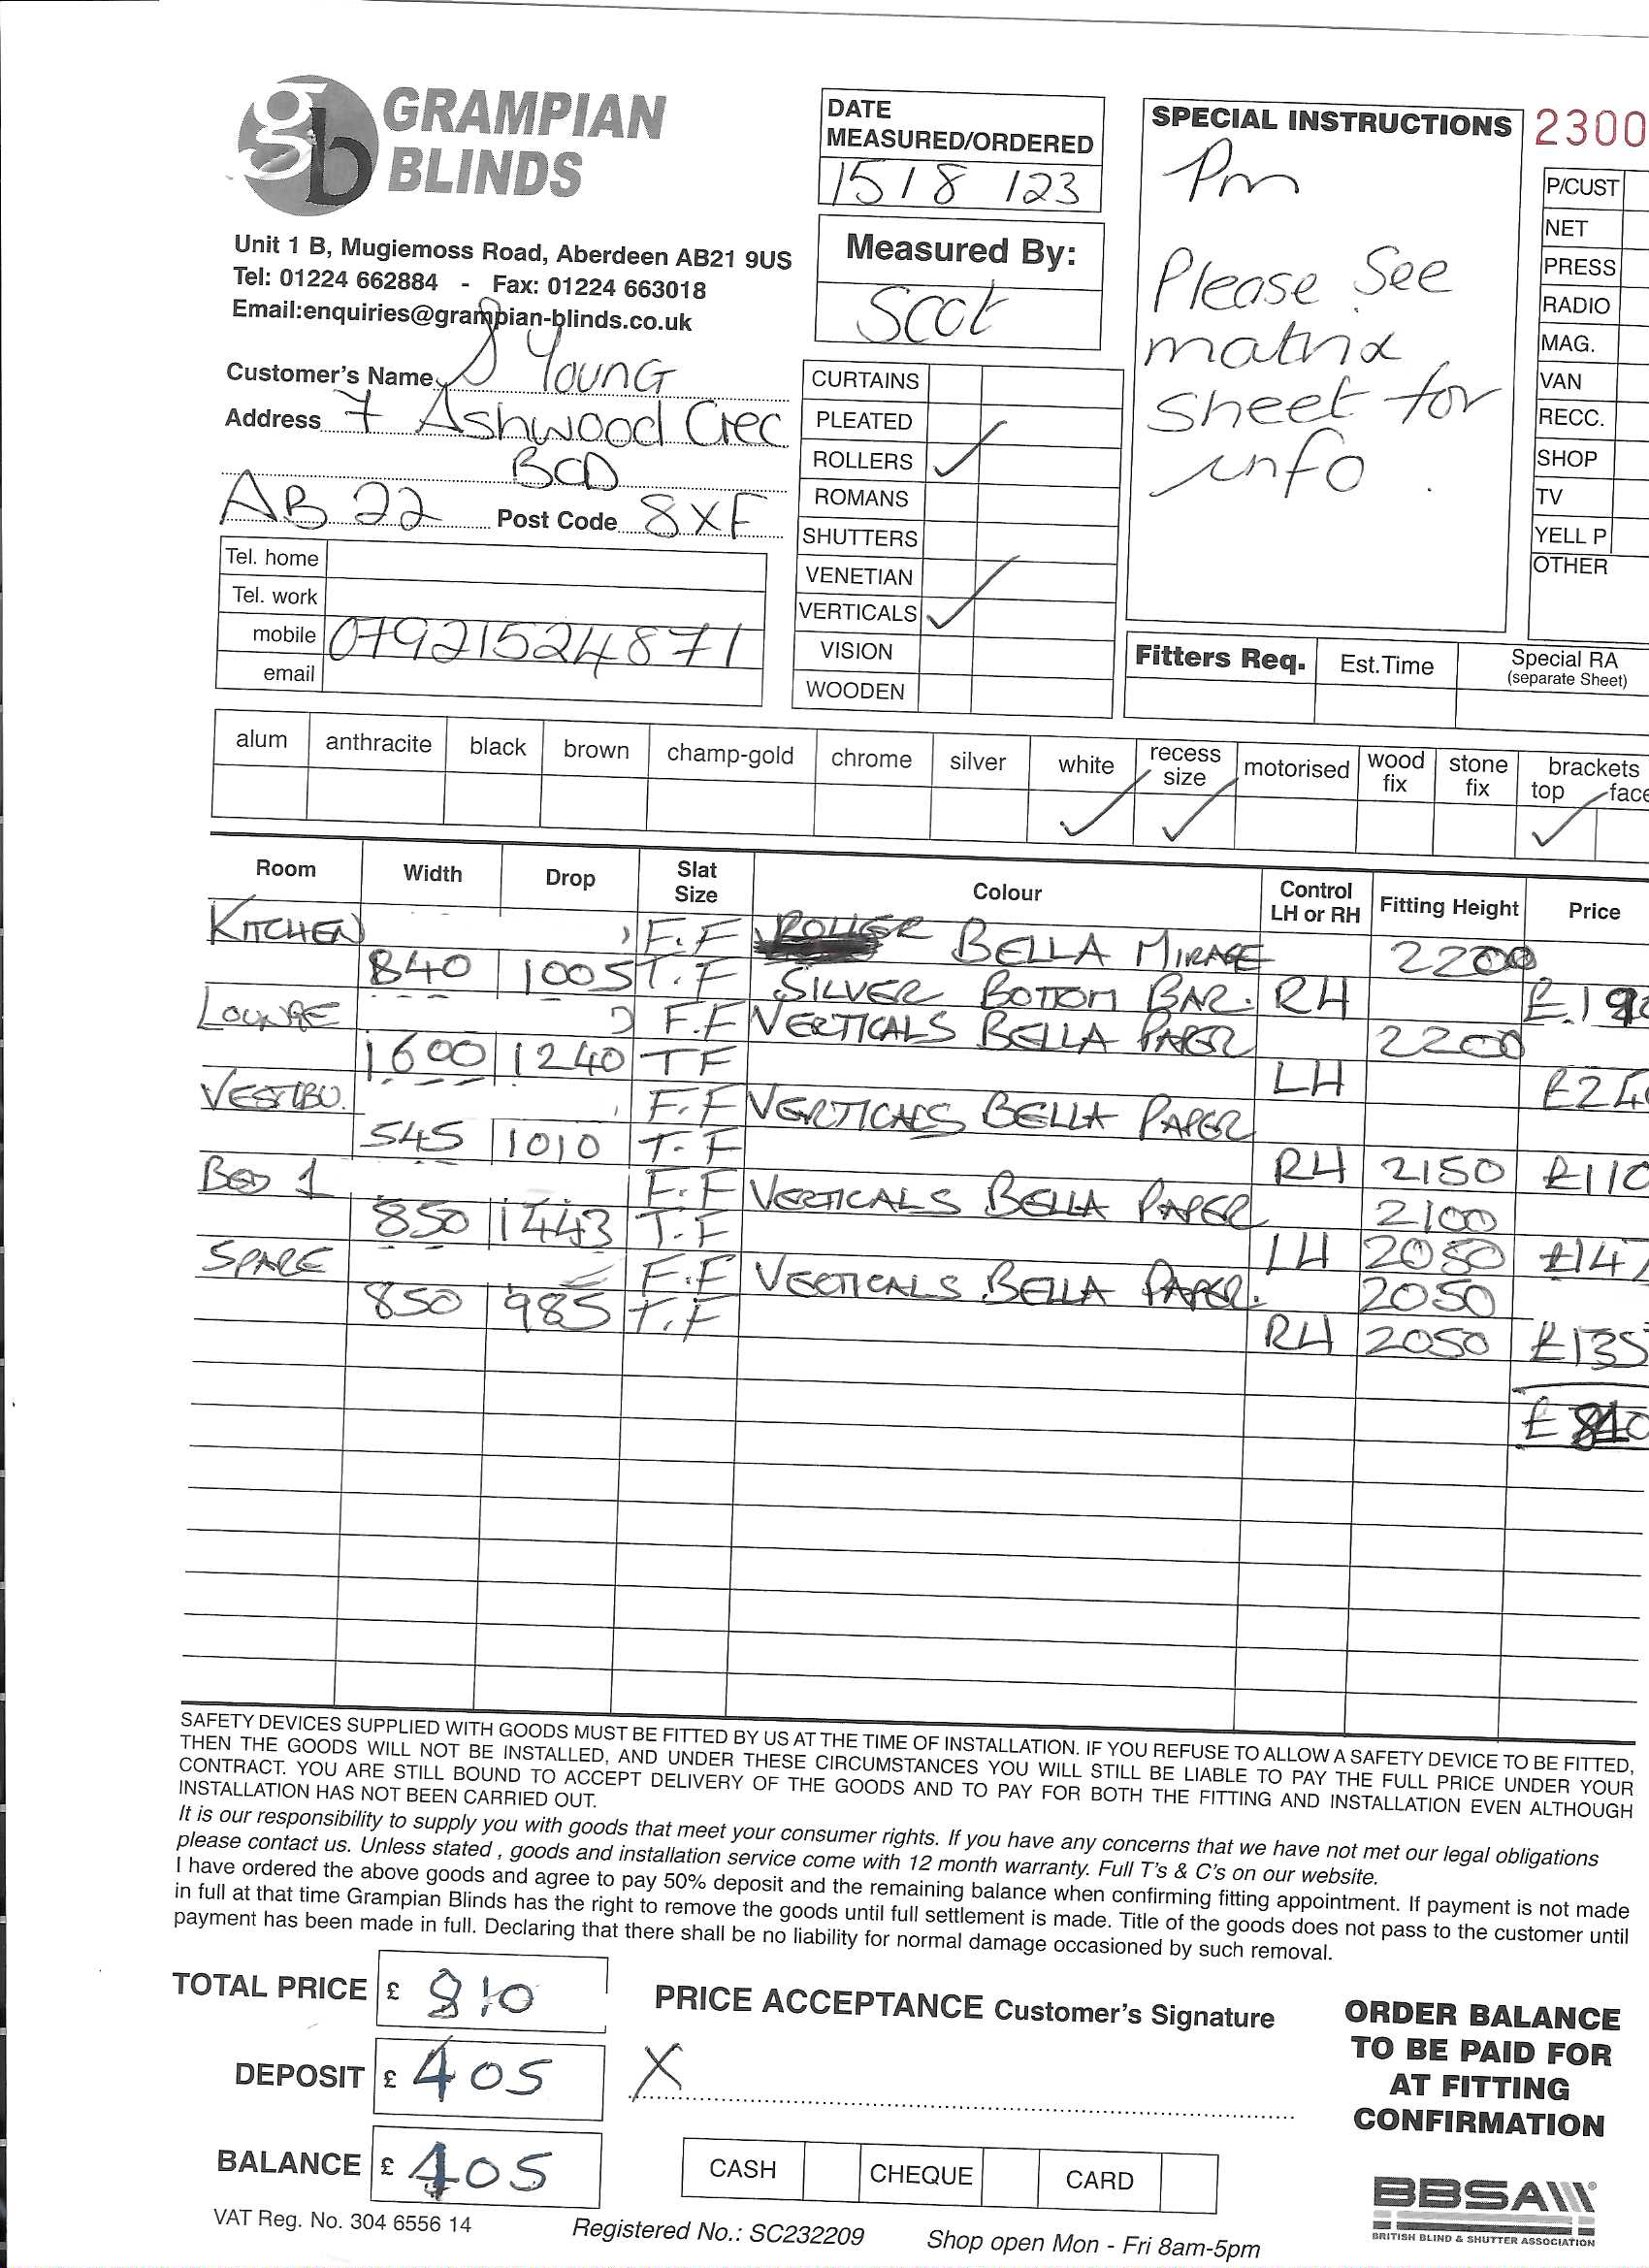 GRAMPIAN
BLINDS
Unit 1 B, Mugiemoss Road, Aberdeen AB21 9US
Tel: 01224 662884 - Fax: 01224 663018
Email:enquiries@grampian-blinds.co.uk
Customer's Name S Young
Address 7 Ashwood Crec
BOD
AB 22 Post Code 8XF
Tel. home
Tel. work
mobile 07921524871
email
DATE
MEASURED/ORDERED
15 / 8 / 23
Measured By:
Scot
CURTAINS
PLEATED
ROLLERS ✓
ROMANS
SHUTTERS
VENETIAN
VERTICALS ✓
VISION
WOODEN
SPECIAL INSTRUCTIONS
Pm
Please See
matrix
sheet for
info.
2300
P/CUST
NET
PRESS
RADIO
MAG.
VAN
RECC.
SHOP
TV
YELL P
OTHER
Fitters Req. Est.Time Special RA
(separate Sheet)
alum anthracite black brown champ-gold chrome silver white recess size motorised wood fix stone fix brackets top face
✓ ✓ ✓
Room Width Drop Slat Size Colour Control LH or RH Fitting Height Price
KITCHEN F.F ROLLER BELLA MIRAGE 2200
840 1005 T.F SILVER BOTTOM BAR. RH
LOUNGE F.F VERTICALS BELLA PAPER 2200
1600 1240 TF LH
VESTIBU. F.F VERTICALS BELLA PAPER
545 1010 T.F RH 2150 £110
BED 1 F.F VERTICALS BELLA PAPER 2100
850 1443 T.F LH 2050 £147
SPARE F.F VERTICALS BELLA PAPER. 2050
850 985 T.F RH 2050 £135
£810
SAFETY DEVICES SUPPLIED WITH GOODS MUST BE FITTED BY US AT THE TIME OF INSTALLATION. IF YOU REFUSE TO ALLOW A SAFETY DEVICE TO BE FITTED,
THEN THE GOODS WILL NOT BE INSTALLED, AND UNDER THESE CIRCUMSTANCES YOU WILL STILL BE LIABLE TO PAY THE FULL PRICE UNDER YOUR
CONTRACT. YOU ARE STILL BOUND TO ACCEPT DELIVERY OF THE GOODS AND TO PAY FOR BOTH THE FITTING AND INSTALLATION EVEN ALTHOUGH
INSTALLATION HAS NOT BEEN CARRIED OUT.
It is our responsibility to supply you with goods that meet your consumer rights. If you have any concerns that we have not met our legal obligations
please contact us. Unless stated , goods and installation service come with 12 month warranty. Full T's & C's on our website.
I have ordered the above goods and agree to pay 50% deposit and the remaining balance when confirming fitting appointment. If payment is not made
in full at that time Grampian Blinds has the right to remove the goods until full settlement is made. Title of the goods does not pass to the customer until
payment has been made in full. Declaring that there shall be no liability for normal damage occasioned by such removal.
TOTAL PRICE £ 810
DEPOSIT £ 405
BALANCE £ 405
PRICE ACCEPTANCE Customer's Signature
X
CASH CHEQUE CARD
ORDER BALANCE
TO BE PAID FOR
AT FITTING
CONFIRMATION
BBSA
BRITISH BLIND & SHUTTER ASSOCIATION
VAT Reg. No. 304 6556 14 Registered No.: SC232209 Shop open Mon - Fri 8am-5pm